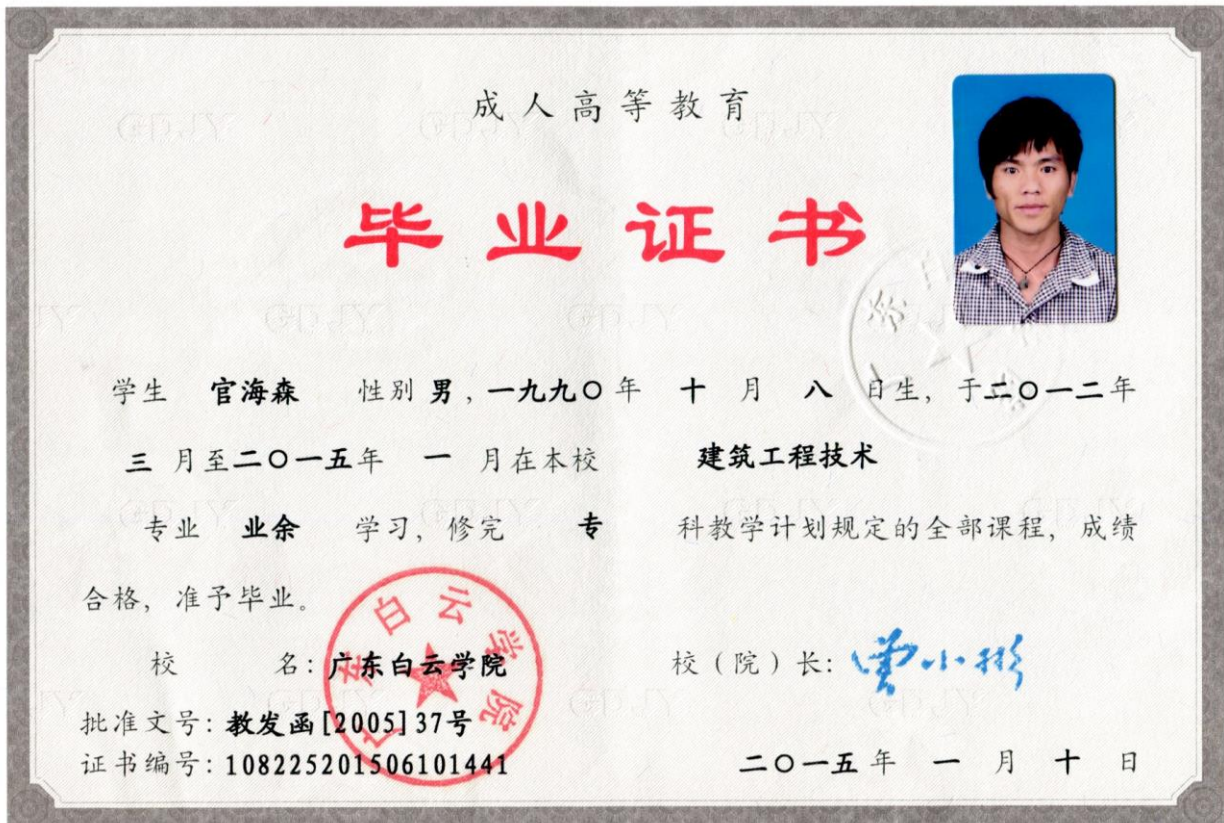 成人高等教育
毕业证书
学生 官海森 性别 男，一九九〇年 十 月 八 日生，于二〇一二年
三 月至二〇一五年 一 月在本校 建筑工程技术
专业 业余 学习，修完 专 科教学计划规定的全部课程，成绩
合格，准予毕业。
校 名：广东白云学院
校（院）长：曾小彬
批准文号：教发函[2005]37号
证书编号：108225201506101441
二〇一五年 一 月 十 日
广东白云学院